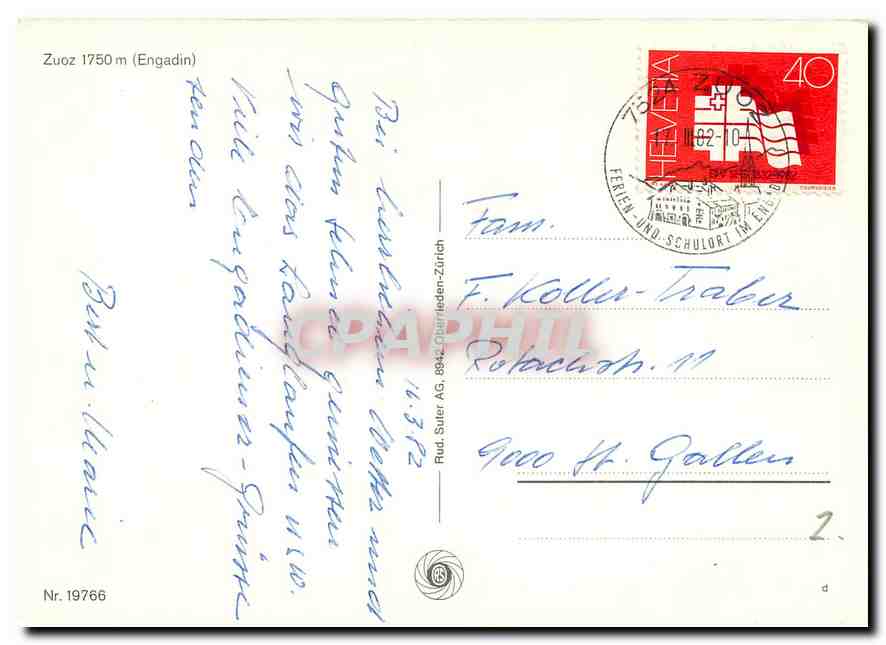 Zuoz 1750 m (Engadin)
Bei herrlichem Wetter und
gutem Schnee geniessen
wir das Langlaufen usw.
Viele Engadiner-Grüsse
senden
16.3.82
Rud. Suter AG, 8942 Oberrieden-Zürich
HELVETIA
40
7524 ZUOZ
17. III. 82-10
FERIEN- UND SCHULORT IM ENGADIN
Fam.
F. Koller-Traber
Rotachstr. 11
9000 St. Gallen
CPAPHIL
Nr. 19766
d
2.